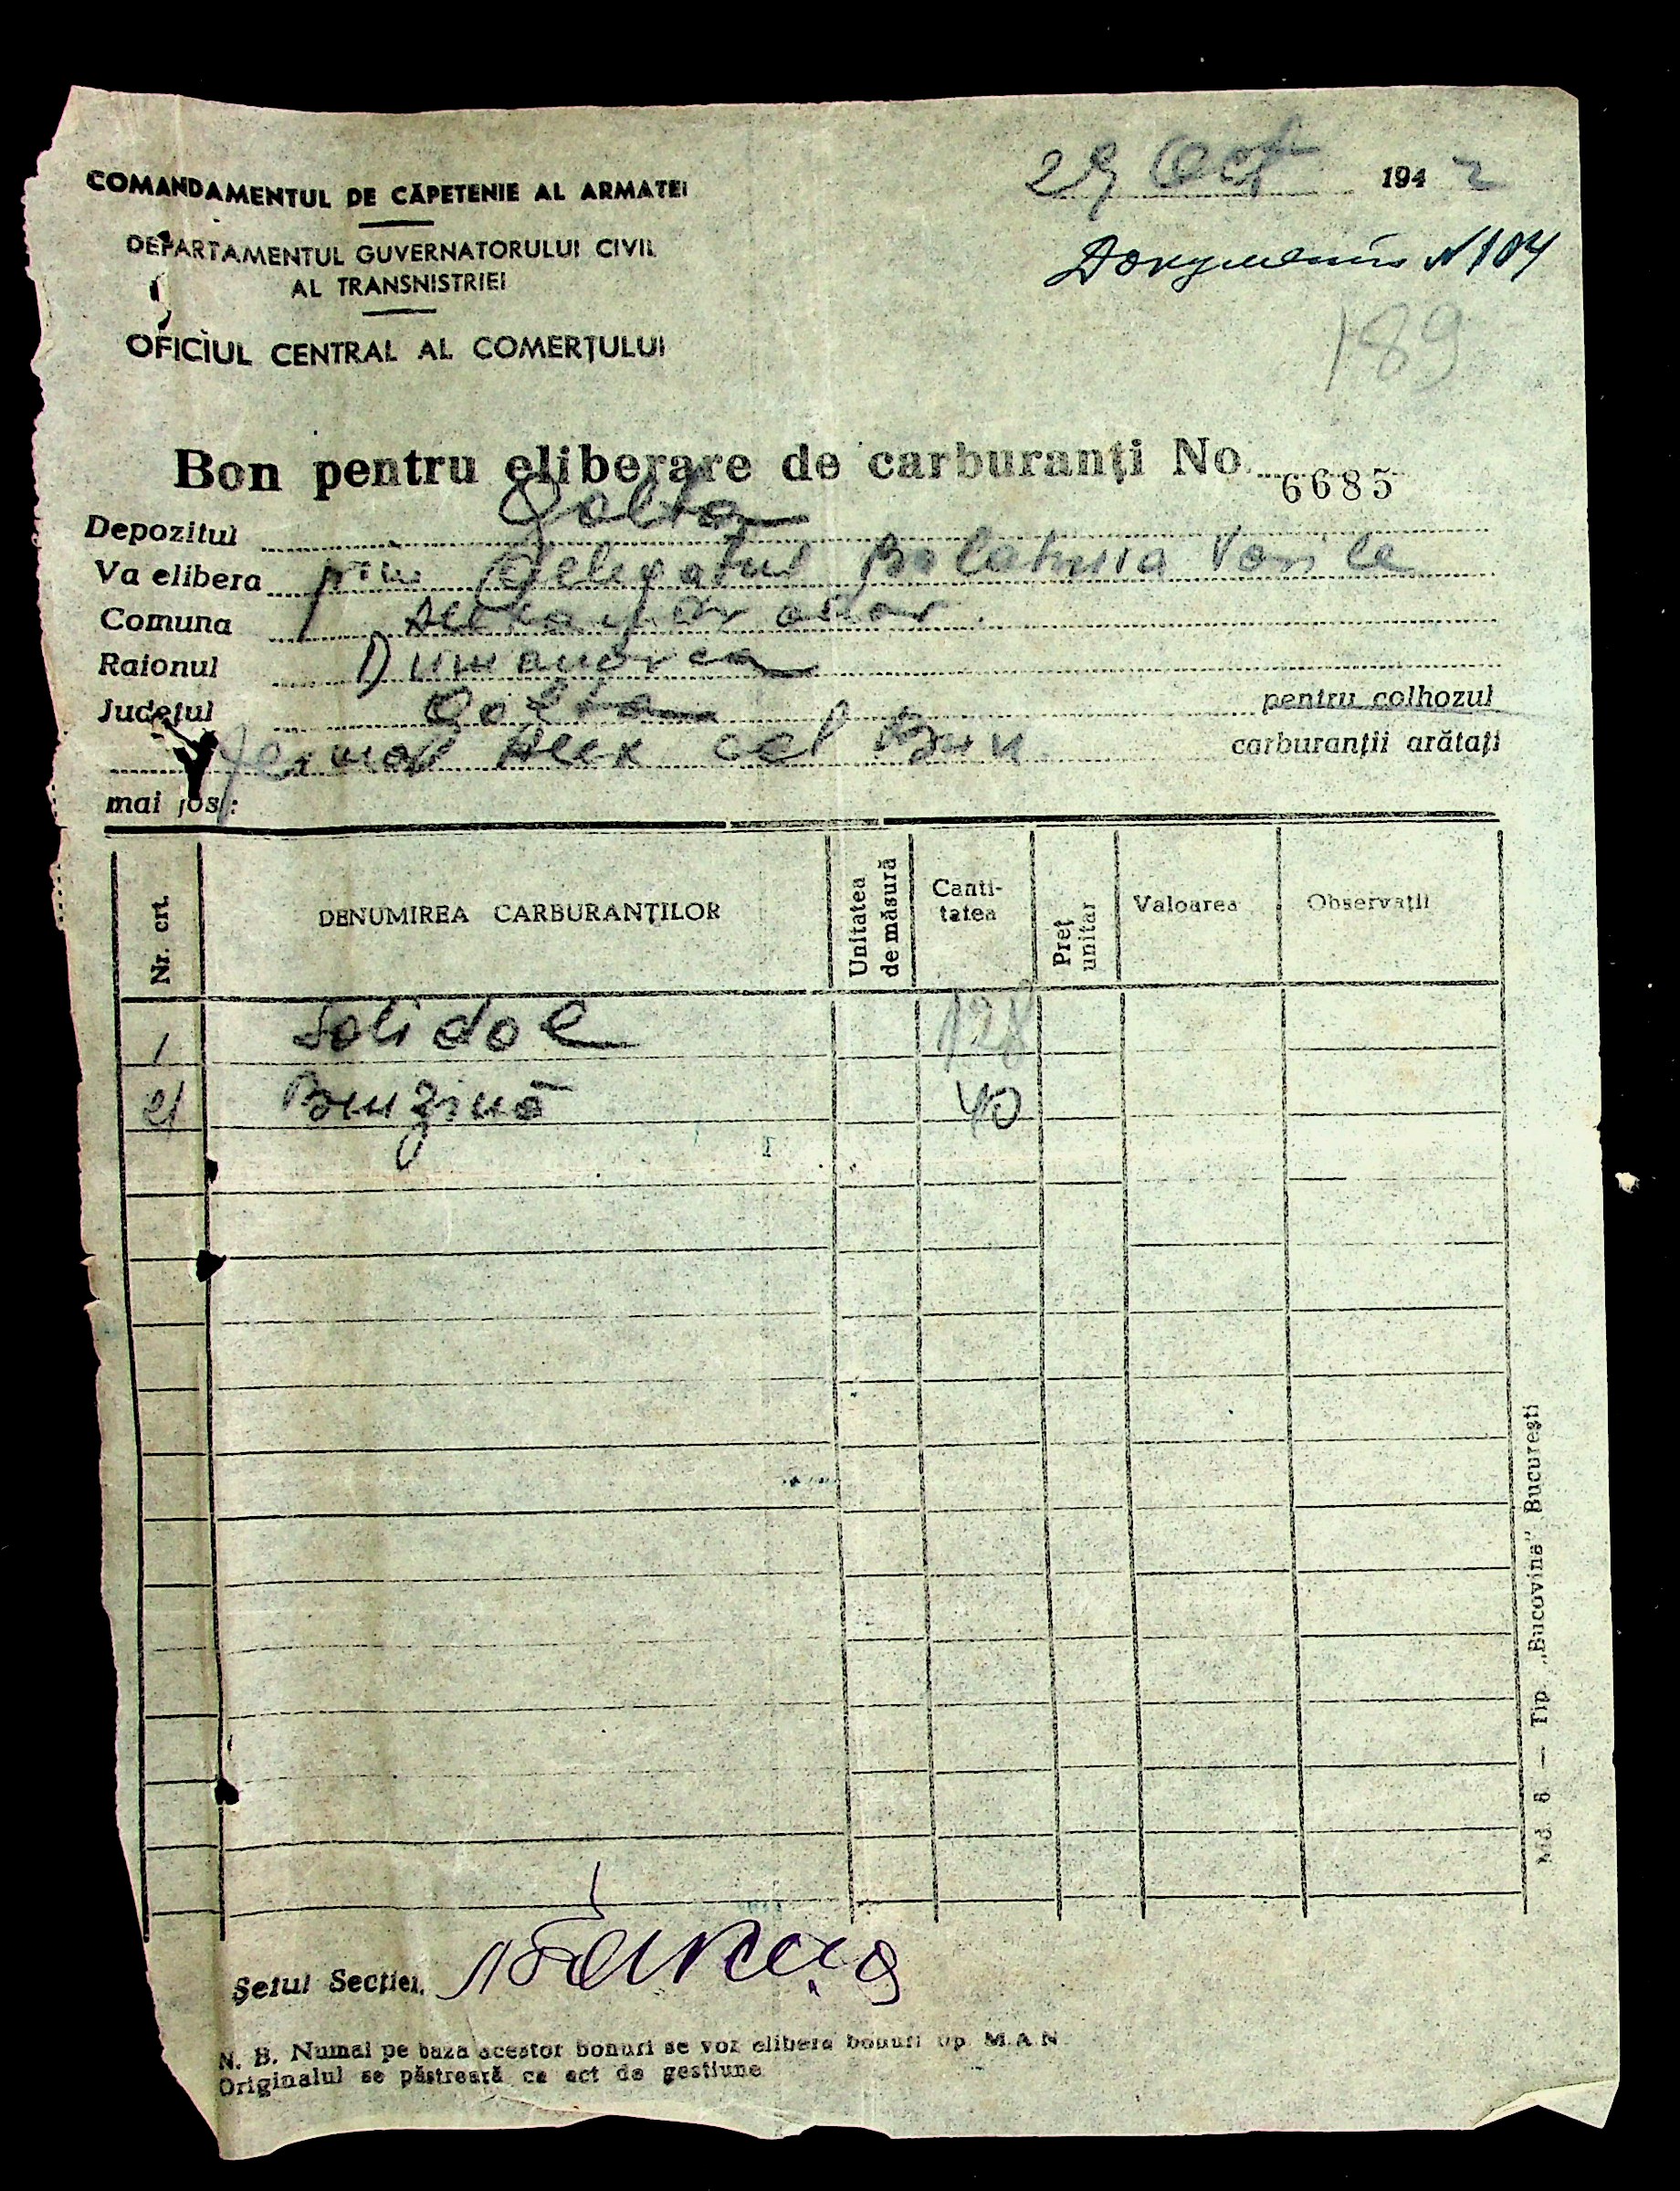 COMANDAMENTUL DE CĂPETENIE AL ARMATEI
DEPARTAMENTUL GUVERNATORULUI CIVIL
AL TRANSNISTRIEI
OFICIUL CENTRAL AL COMERȚULUI
29 Oct 1942
Документ №104
189
Bon pentru eliberare de carburanți No. 6685
Depozitul Golta
Va elibera prin delegatul Vasile
Comuna
Raionul Dumanovca
Județul Golta pentru colhozul
Alex cel Bun carburanții arătați
mai jos:
Nr. crt.
DENUMIREA CARBURANȚILOR
Unitatea de măsură
Canti-
tatea
Preț unitar
Valoarea
Observații
1 Solidol 128
2) Benzină 40
Șeful Secției,
N. B. Numai pe baza acestor bonuri se vor elibera bonuri tip M.A.N.
Originalul se păstrează ca act de gestiune
Md. 6 — Tip. „Bucovina" București